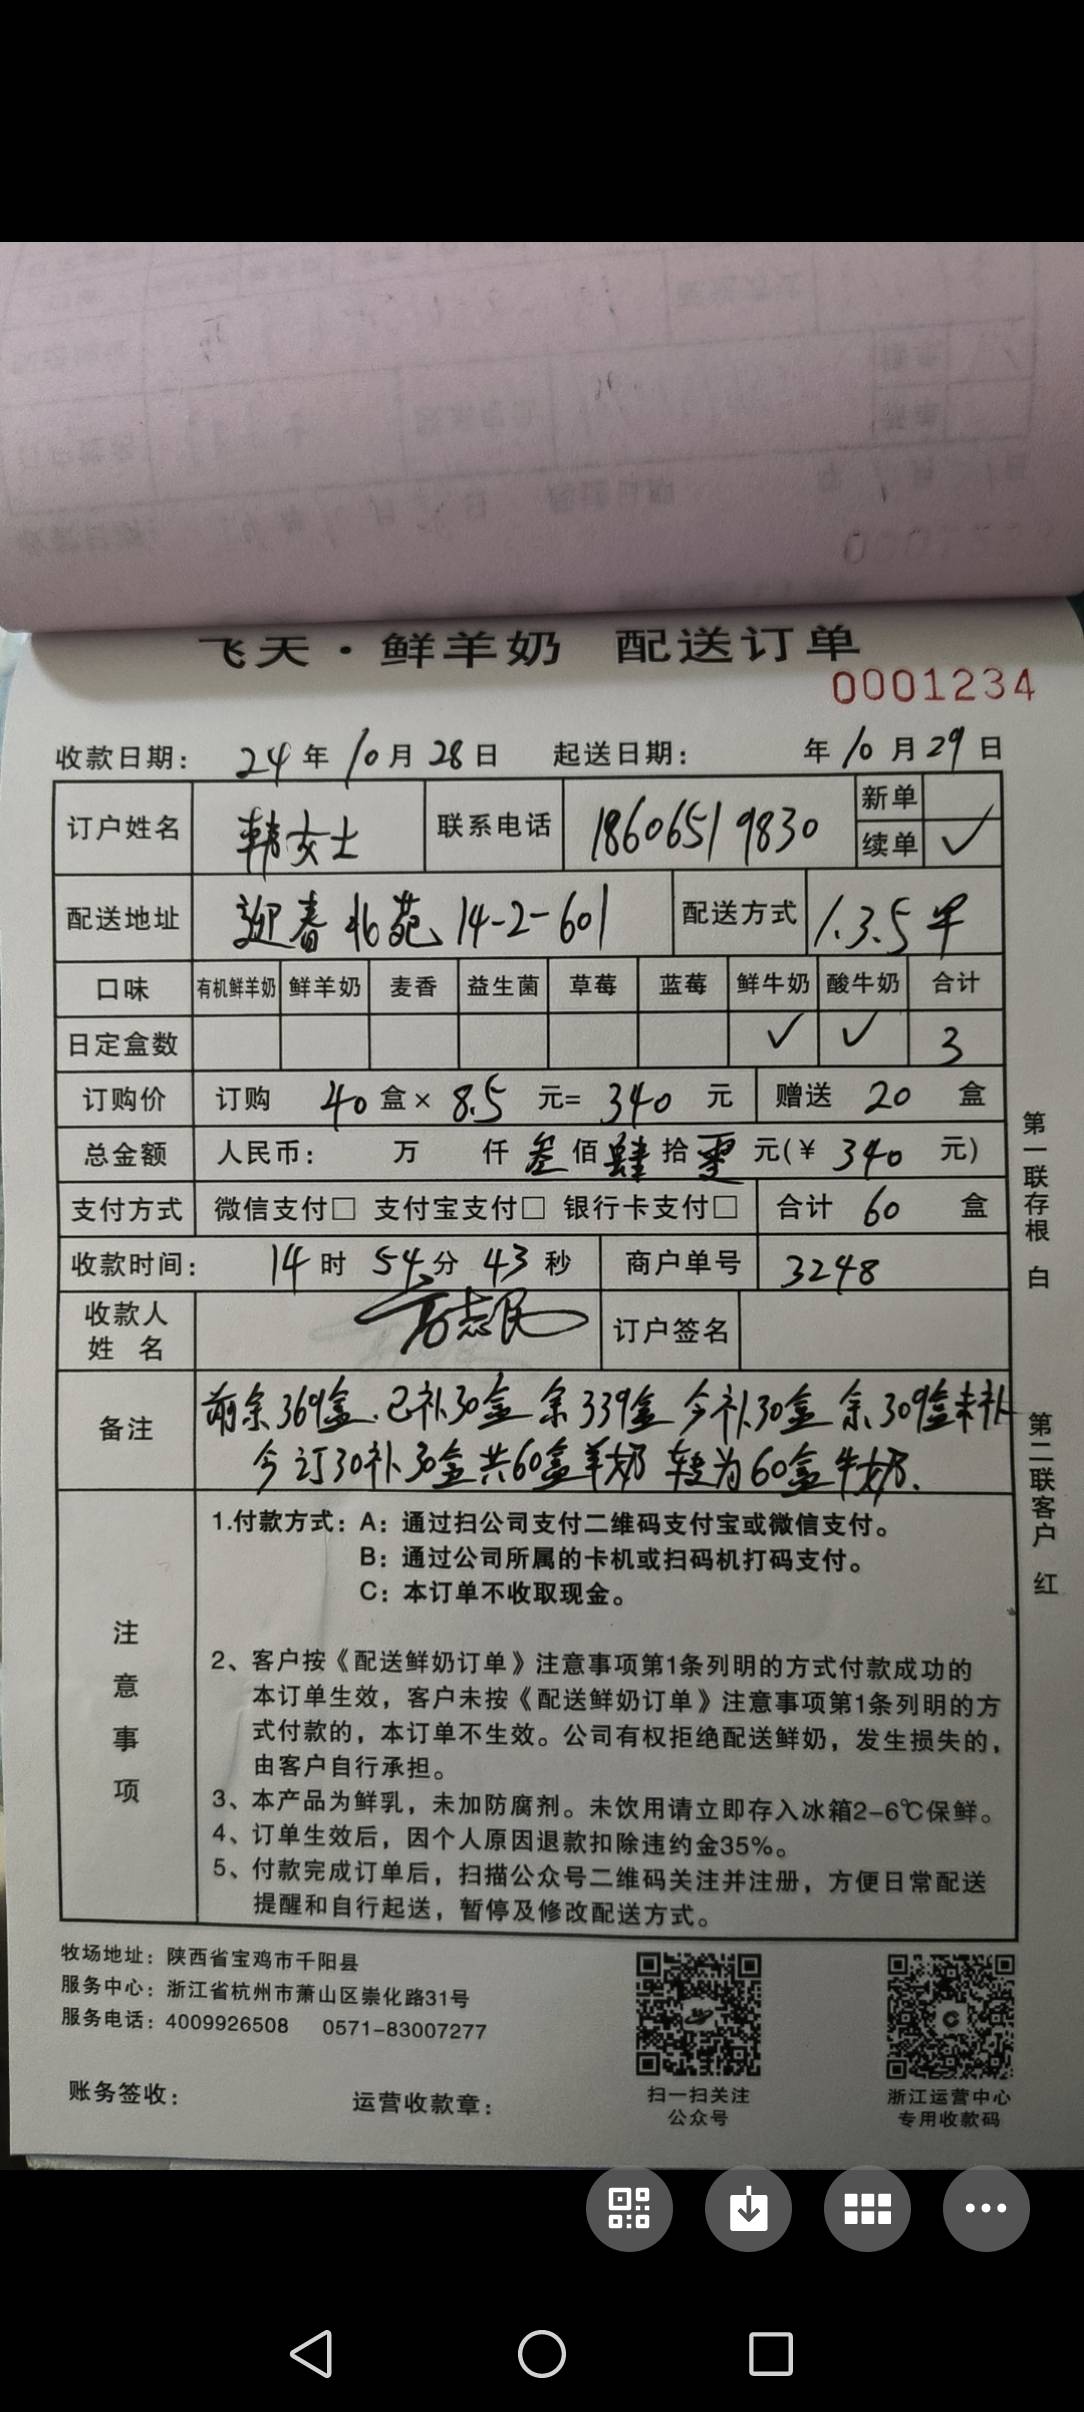 飞天·鲜羊奶 配送订单
0001234
收款日期: 24年10月28日 起送日期: 年10月29日
订户姓名 韩女士 联系电话 18606519830 新单
续单 ✓
配送地址 迎春北苑 14-2-601 配送方式 1.3.5早
口味 有机鲜羊奶 鲜羊奶 麦香 益生菌 草莓 蓝莓 鲜牛奶 酸牛奶 合计
日定盒数 ✓ ✓ 3
订购价 订购 40 盒× 8.5 元= 340 元 赠送 20 盒
总金额 人民币: 万 仟 叁佰肆拾零元(¥ 340 元)
支付方式 微信支付□ 支付宝支付□ 银行卡支付□ 合计 60 盒
收款时间: 14时 54分 43秒 商户单号 3248
收款人姓名 订户签名
备注 前余369盒.已补30盒 余339盒 今补30盒 余309盒未补
今订30补30盒共60盒羊奶 转为60盒牛奶.
注意事项
1.付款方式: A: 通过扫公司支付二维码支付宝或微信支付。
B: 通过公司所属的卡机或扫码机打码支付。
C: 本订单不收取现金。
2、客户按《配送鲜奶订单》注意事项第1条列明的方式付款成功的
本订单生效，客户未按《配送鲜奶订单》注意事项第1条列明的方
式付款的，本订单不生效。公司有权拒绝配送鲜奶，发生损失的，
由客户自行承担。
3、本产品为鲜乳，未加防腐剂。未饮用请立即存入冰箱2-6℃保鲜。
4、订单生效后，因个人原因退款扣除违约金35%。
5、付款完成订单后，扫描公众号二维码关注并注册，方便日常配送
提醒和自行起送，暂停及修改配送方式。
第一联存根 白
第二联客户 红
牧场地址: 陕西省宝鸡市千阳县
服务中心: 浙江省杭州市萧山区崇化路31号
服务电话: 4009926508 0571-83007277
账务签收: 运营收款章:
扫一扫关注
公众号
浙江运营中心
专用收款码